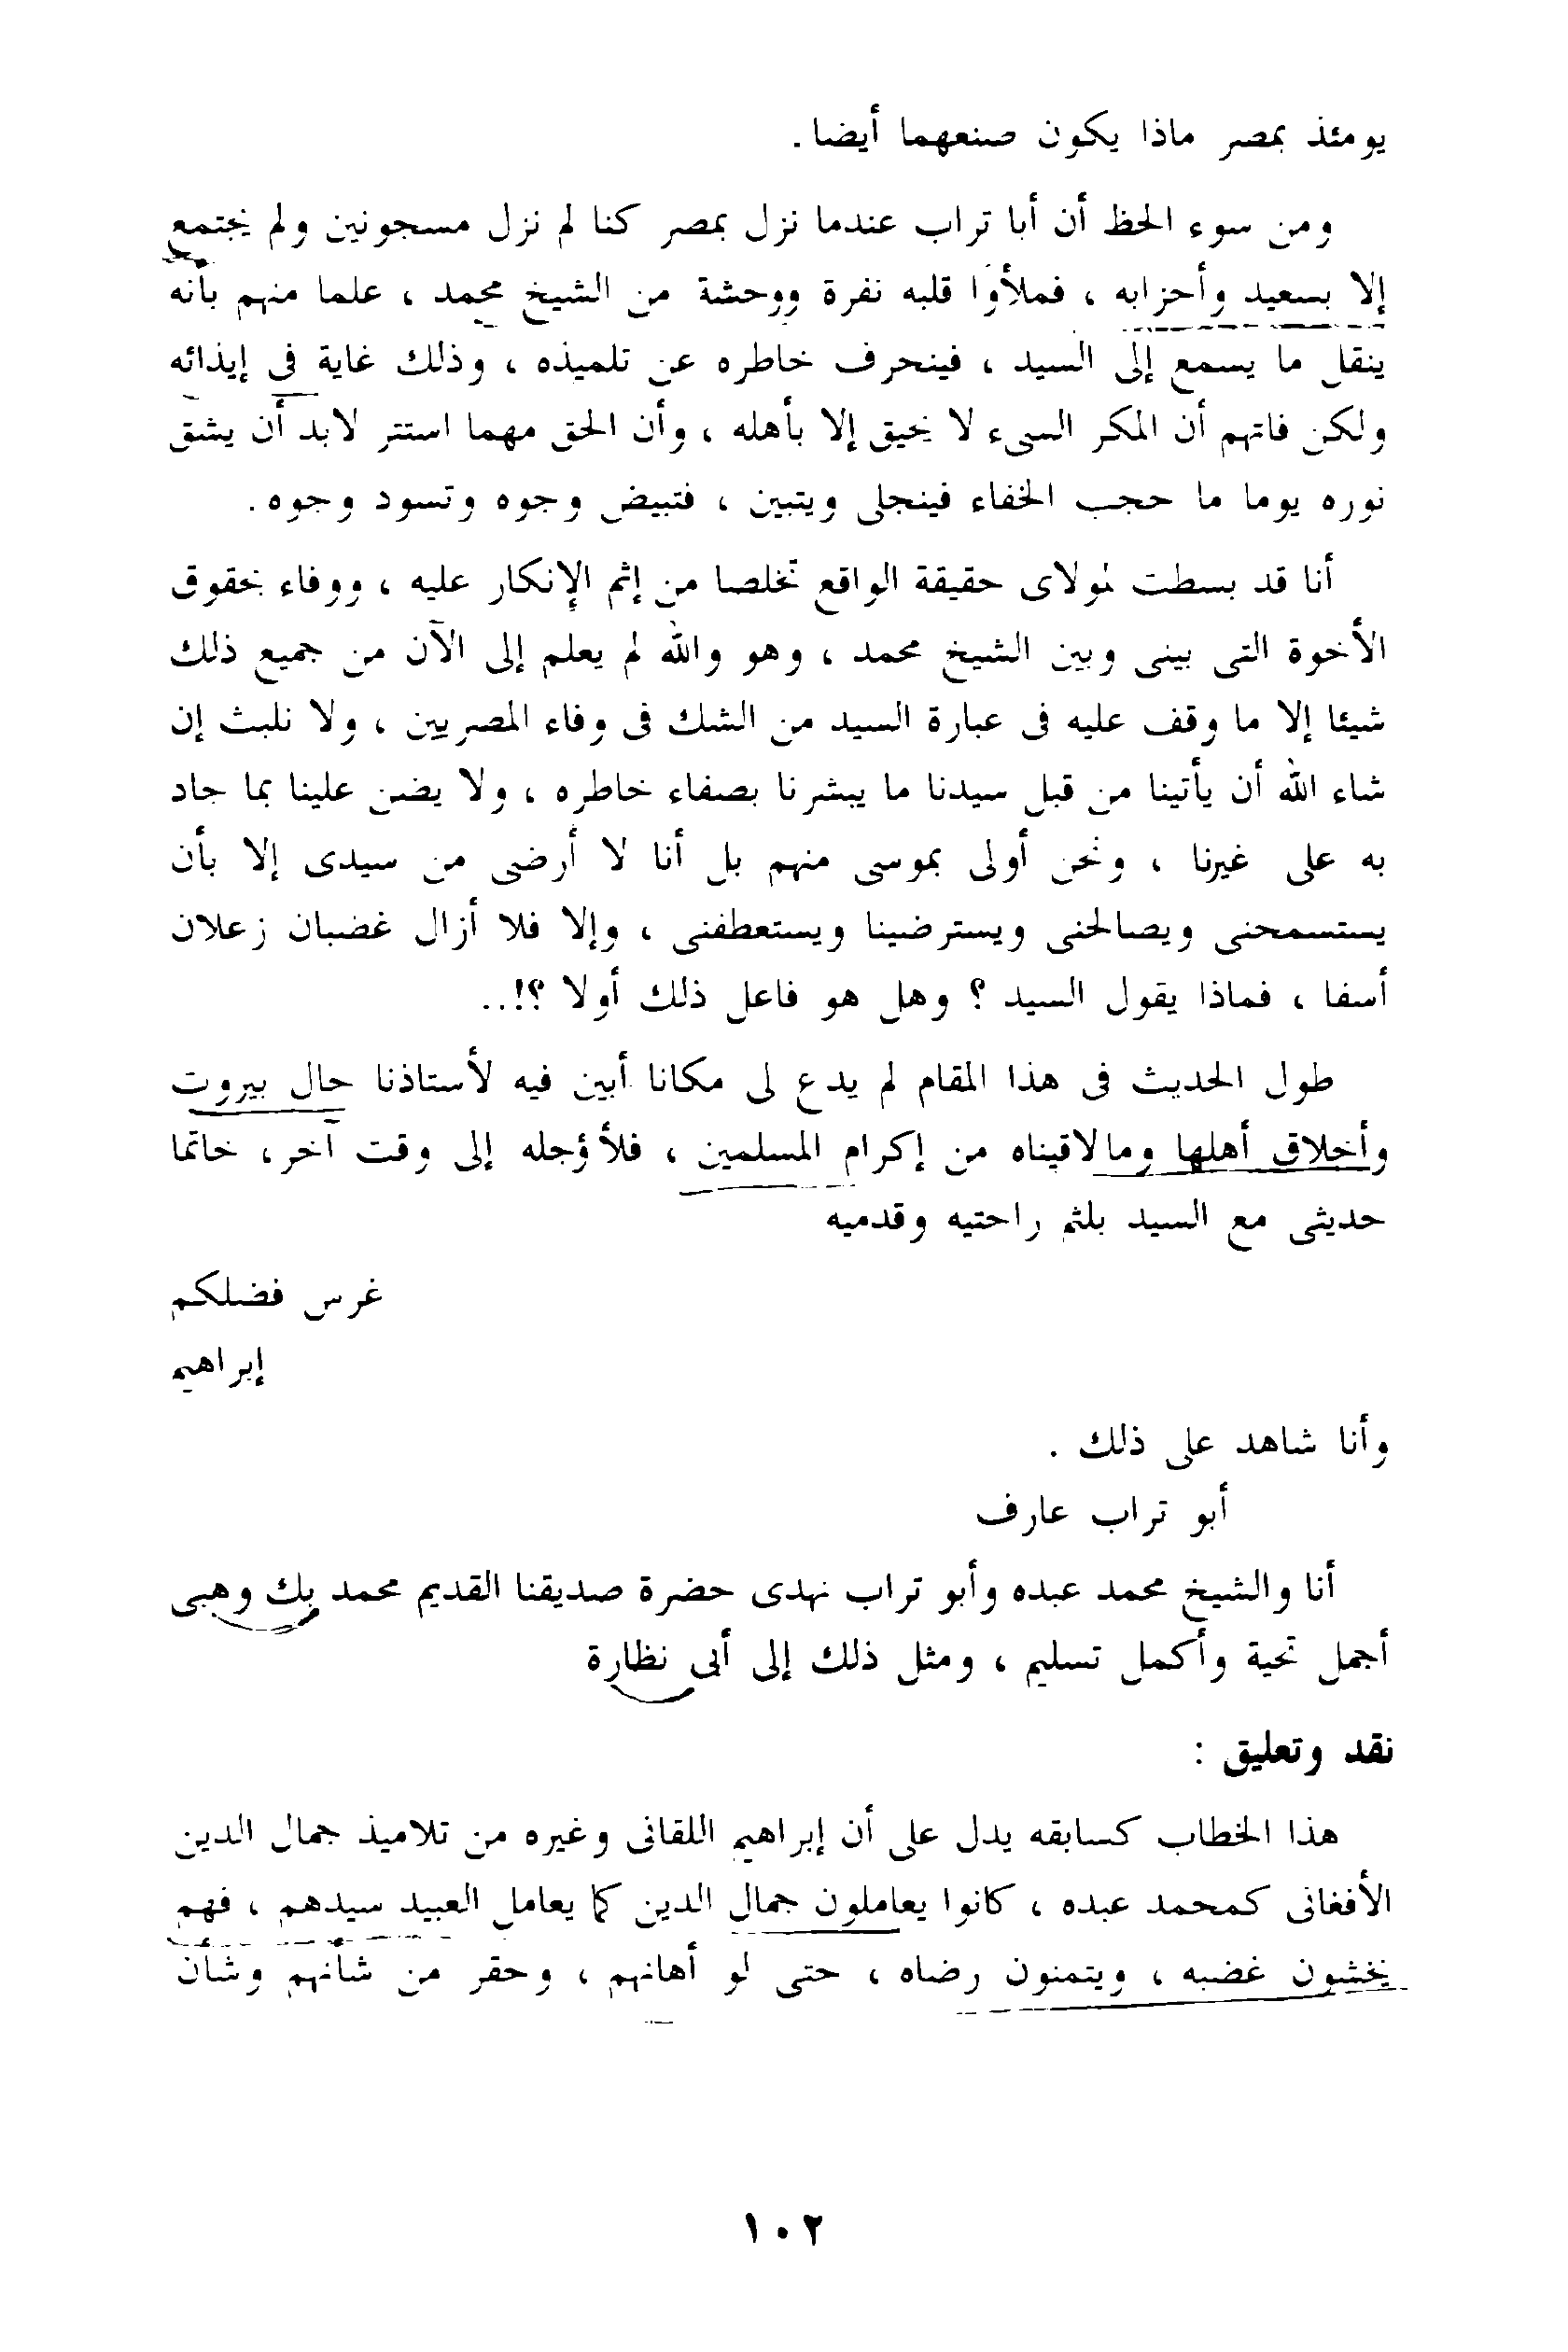 يومئذ بمصر ماذا يكون صنعهما أيضا .
ومن سوء الحظ أن أبا تراب عندما نزل بمصر كنا لم نزل مسجونين ولم يجتمع
إلا بسعيد وأحزابه ، فملأوا قلبه نفرة ووحشة من الشيخ محمد ، علما منهم بأنه
ينقل ما يسمع إلى السيد ، فينحرف خاطره عن تلميذه ، وذلك غاية فى إيذائه
ولكن فاتهم أن المكر السىء لا يحيق إلا بأهله ، وأن الحق مهما استتر لابد أن يشق
نوره يوما ما حجب الخفاء فينجلى ويتبين ، فتبيض وجوه وتسود وجوه .
أنا قد بسطت لمولاى حقيقة الواقع تخلصا من إثم الإنكار عليه ، ووفاء بحقوق
الأخوة التى بينى وبين الشيخ محمد ، وهو والله لم يعلم إلى الآن من جميع ذلك
شيئا إلا ما وقف عليه فى عبارة السيد من الشك فى وفاء المصريين ، ولا نلبث إن
شاء الله أن يأتينا من قبل سيدنا ما يبشرنا بصفاء خاطره ، ولا يضن علينا بما جاد
به على غيرنا ، ونحن أولى بموسى منهم بل أنا لا أرضى من سيدى إلا بأن
يستسمحنى ويصالحنى ويسترضينا ويستعطفنى ، وإلا فلا أزال غضبان زعلان
أسفا ، فماذا يقول السيد ؟ وهل هو فاعل ذلك أولا ؟!..
طول الحديث فى هذا المقام لم يدع لى مكانا أبين فيه لأستاذنا حال بيروت
وأخلاق أهلها ومالاقيناه من إكرام المسلمين ، فلأؤجله إلى وقت آخر، خاتما
حديثى مع السيد بلثم راحتيه وقدميه
غرس فضلكم
إبراهيم
وأنا شاهد على ذلك .
أبو تراب عارف
أنا والشيخ محمد عبده وأبو تراب نهدى حضرة صديقنا القديم محمد بك وهبى
أجمل تحية وأكمل تسليم ، ومثل ذلك إلى أبى نظارة
نقد وتعليق :
هذا الخطاب كسابقه يدل على أن إبراهيم اللقانى وغيره من تلاميذ جمال الدين
الأفغانى كمحمد عبده ، كانوا يعاملون جمال الدين كما يعامل العبيد سيدهم ، فهم
يخشون غضبه ، ويتمنون رضاه ، حتى لو أهانهم ، وحقر من شأنهم وشأن
١٠٢